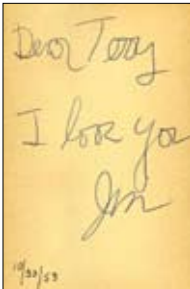 Dear Terry
I love you
Jim
10/30/53